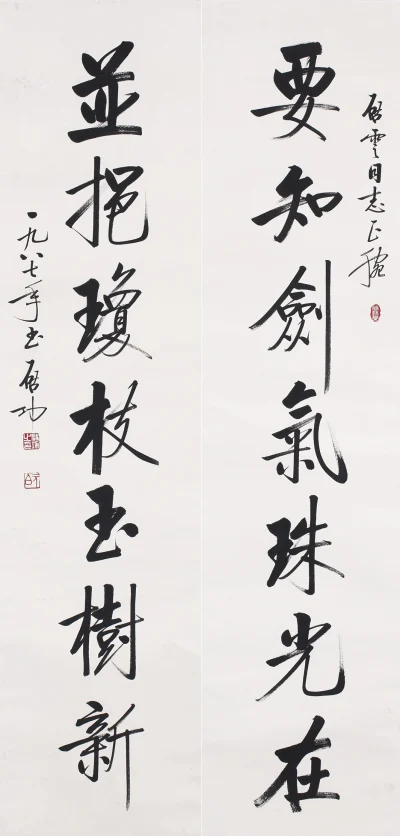 启云同志正腕
要知劍氣珠光在
並挹瓊枝玉樹新
一九八七年书启功